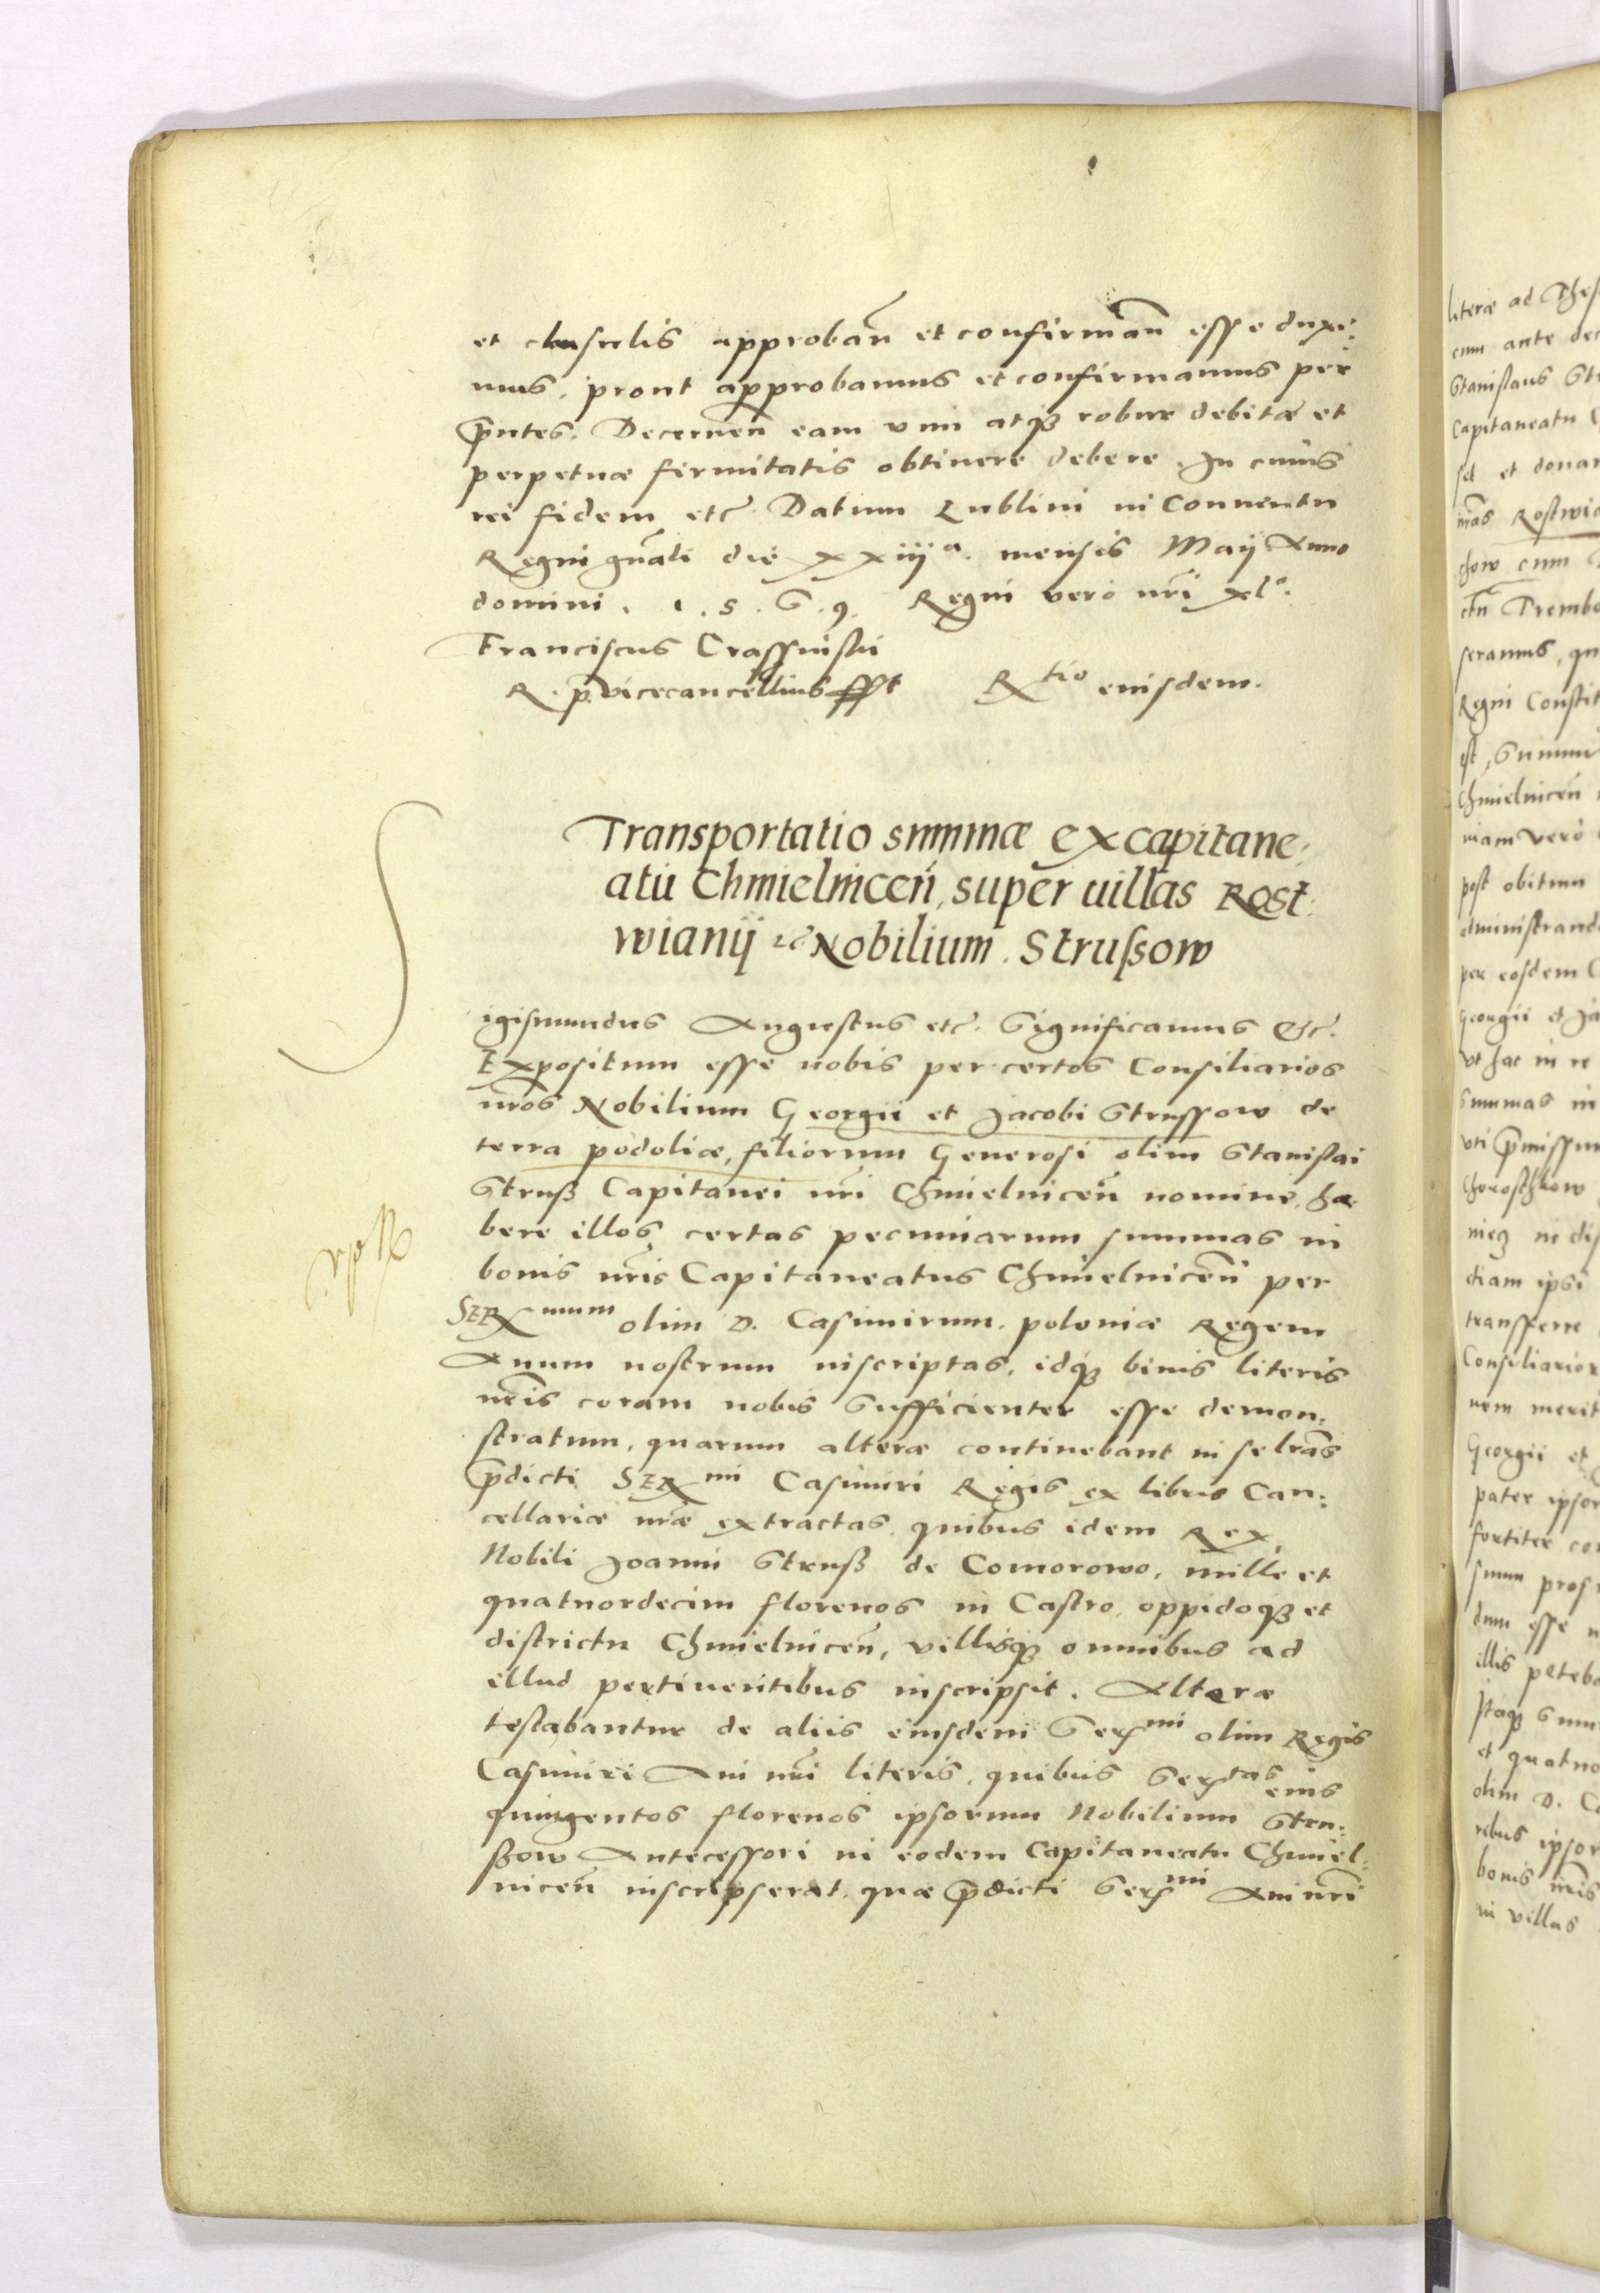 et clausulis approbañ et confirmañ esse duxi:
mus, prout approbamus et confirmamus per
p̃ntes. Decerneñ eam vim atq3 robur debitæ et
perpetuæ firmitatis obtinere debere. In cuius
rei fidem etc Datum Lublini in Conuentu
Regni gñali die xxiiij a. mensis Maij Anno
domini . 1 . 5 . 6 . 9. Regni vero nr̃i xl°.
Franciscus Crassinskii
R. p̃. vicecancellius sst R tio eiusdem.
Transportatio summæ ex capitane:
atu Chmielniceñ, super uillas Rost:
wianij etc Nobilium. Strußow
S
igismundus Augustus etc. Significamus etc.
Expositum esse nobis per certos Consiliarios
nr̃os Nobilium Georgii et Jacobi Strussow de
terra podoliæ, filiorum Generosi olim Stanislai
Struß Capitanei nr̃i Chmielniceñ nomine, ha
bere illos certas pecuniarum summas in
bonis nr̃is Capitaneatus Chmielniceñ per
SER mum olim D. Casimirum. poloniæ Regem
Auum nostrum inscriptas, idq3 binis literis
nr̃is coram nobis Sufficienter esse demon:
stratum, quarum alteræ continebant in se lr̃as
p̃dicti SER mi Casimiri Regis ex libris Can:
cellariæ nr̃æ extractas, quibus idem Rex,
Nobili Joanni Struß de Comorowo, mille et
quatuordecim florenos in Castro, oppidoq3 et
districtu Chmielniceñ, villisq3 omnibus ad
illud pertinentibus inscripsit. Alteræ
testabantur de aliis eiusdem Ser mi olim Regis
Casimiri Aui nr̃i literis, quibus Ser tas eius
quingentos florenos ipsorum Nobilium Stru:
ßow Antecessori in eodem Capitaneatu Chmiel:
niceñ inscripserat, quæ p̃dicti Ser mi Aui nr̃i
literæ ad
cum ante
Stanislaus
Capitaneatu
et donar
chow cum
Trembo
seramus, qu
Regni Constit
est, Summ
Chmielniceñ
niam vero
post obitum
per eosdem
Georgii et Ja
vt hac in re
Summas in
vti p̃missum
diam ipsi
transferre
Consiliarior
nem merit
Georgii et
pater ipsor
fortiter
dum esse
illis peteb
et quatuo
olim D. C
rebus ipsor
bonis nr̃is
in villas